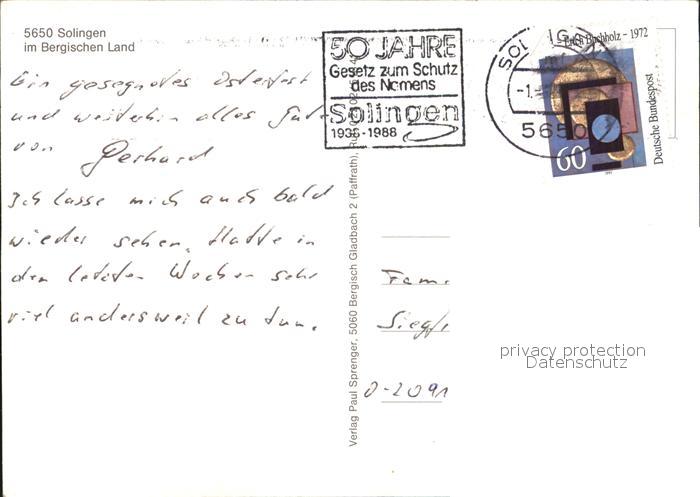 5650 Solingen
im Bergischen Land
Ein gesegnetes Osterfest
und weiterhin alles Gute
von Gerhard
Ich lasse mich auch bald
wieder sehen. Hatte in
den letzten Wochen sehr
viel anderweil zu tun.
50 JAHRE
Gesetz zum Schutz
des Namens
Solingen
1938-1988
SOLINGEN
-1.
5650
Erich Buchholz - 1972
60
Deutsche Bundespost
Verlag Paul Sprenger, 5060 Bergisch Gladbach 2 (Paffrath),
Fam.
Siegfr
O-2091
privacy protection
Datenschutz